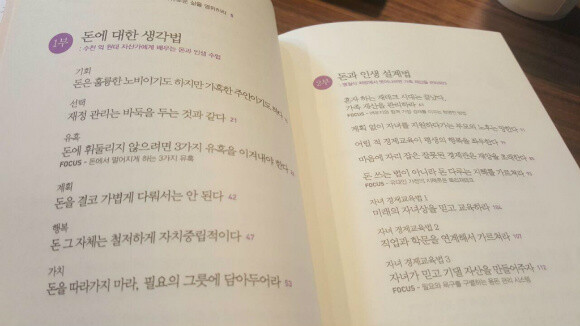 삶을
1부
돈에 대한 생각법
: 수천 억 원대 자산가에게 배우는 돈과 인생 수업
기회
돈은 훌륭한 노비이기도 하지만 가혹한 주인이기도 하다
선택
재정 관리는 바둑을 두는 것과 같다 21
유혹
돈에 휘둘리지 않으려면 3가지 유혹을 이겨내야 한다
FOCUS - 돈에서 멀어지게 하는 3가지 유혹
계획
돈을 결코 가볍게 다뤄서는 안 된다 42
행복
돈 그 자체는 철저하게 가치중립적이다 47
가치
돈을 따라가지 마라, 필요의 그릇에 담아두어라 53
2부
돈과 인생 설계법
혼자 하는 재테크 시대는 끝났다,
가족 재산을 관리하라
FOCUS
계획 없이 자녀를 지원하다가는 부모의 노후는 망한다
어릴 적 경제교육이 평생의 행복을 좌우한다
마음에 자리 잡은 잘못된 경제관은 재앙을 초래한다
돈 쓰는 법이 아니라 돈 다루는 지혜를 가르쳐라
FOCUS
자녀 경제교육법 1
미래의 자녀상을 믿고 교육하라 104
자녀 경제교육법 2
직업과 학문을 연계해서 가르쳐라 107
자녀 경제교육법 3
자녀가 믿고 기댈 자산을 만들어주자 112
FOCUS - 필요와 욕구를 구별하는 용돈 관리 시스템